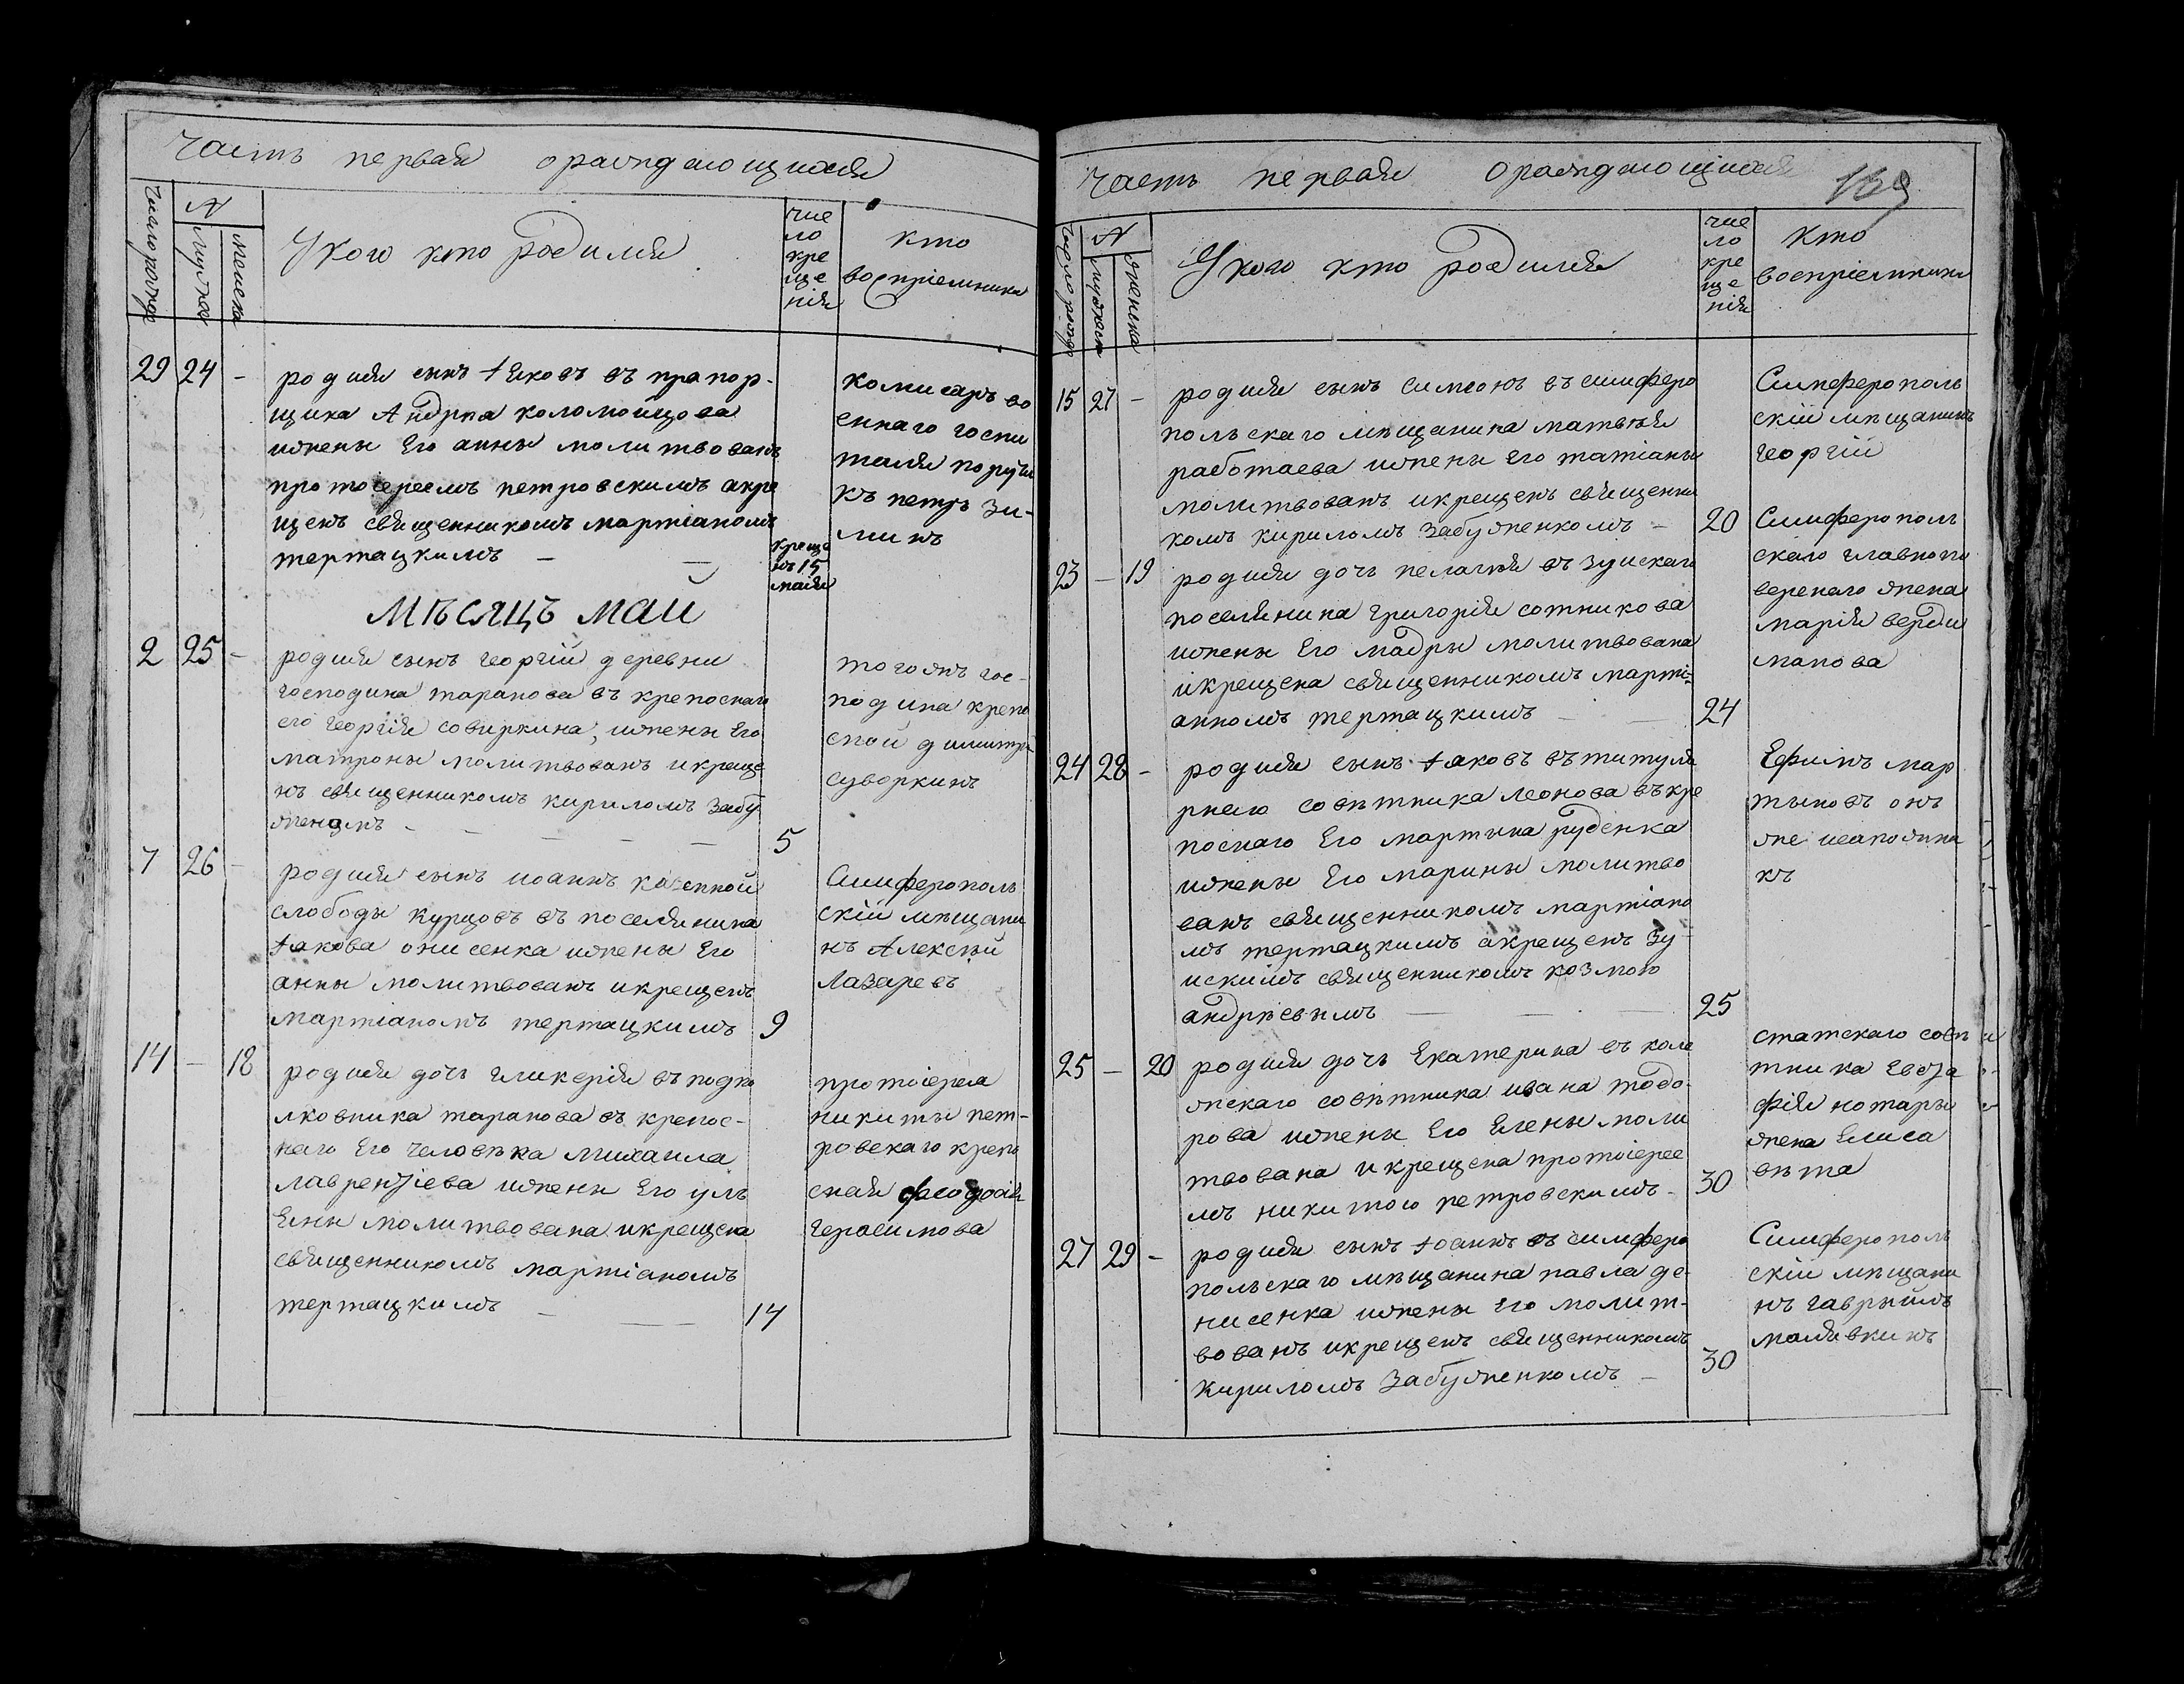 часть первая ораждающихся
число рожде
№
мужеска
женска
Укого кто родился
чис
ло
кре
ще
нія
кто
воспріемники
29 24 -
родился сынъ Іяковъ въ прапор-
щика Андрѣя коломойцова
ижены Его анны молитвованъ
протоіереемъ петровскимъ акре
щенъ священникомъ мартіаномъ
тертацкимъ
креще
нъ 15
мая
комисаръ во
еннаго госпи
таля поручи
къ петръ Зи-
минъ
мѣсяцъ май
2 25 -
родился сынъ георгій деревни
господина таранова въ крепоснаго
его георгія совиркина, ижены Его
матроны молитвованъ икреще
нъ священникомъ кириломъ Забу
женкомъ
5
тогожъ гос-
подина крепо
сной димитрій
суворкинъ
7 26 -
родился сынъ иоаннъ казенной
слободы курцовъ въ поселянина
Іакова онисенка ижены Его
анны молитвованъ икрещенъ
мартіаномъ тертацкимъ
9
Симферополь
скій мѣщани
нъ Алексѣй
Лазаревъ
14 - 18
родился дочъ гликерія въ подпо
лковника таранова въ крепос-
наго Его человѣка михаила
лаврентіева ижены Его уль
Ены молитвована икрещена
священникомъ мартіаномъ
тертацкимъ
14
протоіерея
никиты пет-
ровскаго крепо
сная феодосія
герасимова
часть первая ораждающихся
139
число рожде
№
мужеска
женска
Укого кто родился
чис
ло
кре
ще
нія
кто
воспріемники
15 27 -
родился сынъ симеонъ въ симферо
польскаго мѣщанина матвѣя
работаева ижены его татіаны
молитвованъ икрещенъ священни
комъ кириломъ Забуженкомъ -
20
Симферополь
скій мѣщанинъ
георгій
23 - 19
родился дочъ пелагія въ зуискаго
поселянина григорія сотникова
ижены Его мадры молитвована
икрещена священникомъ марті-
анномъ тертацкимъ
24
Симферополь
скаго главнопо
веренаго жена
марія верди
манова
24 28 -
родился сынъ Іаковъ въ титуля
рнаго совѣтника леонова въ кре
поснаго Его мартина руденка
ижены Его марины молитво
ванъ священникомъ мартіано
мъ тертацкимъ акрещенъ Зу-
искимъ священникомъ козмою
андрѣевымъ
25
Ефимъ мар
тыновъ онъ
же исаполника
къ
25 - 20
родился дочъ Екатерина въ коле
жскаго совѣтника ивана тодо-
рова ижены Его Елены моли
твована икрещена протоіерее
мъ никитою петровскимъ -
30
статскаго совѣ
тника Евста
фія нотары
жена Елиса
вѣта
27 29 -
родился сынъ Іоаннъ въ симферо
польскаго мѣщанина павла де-
нисенка ижены Его молит-
вованъ икрещенъ священникомъ
кириломъ Забуженкомъ -
30
Симферополь
скій мѣщани
нъ гаврыилъ
малявкинъ